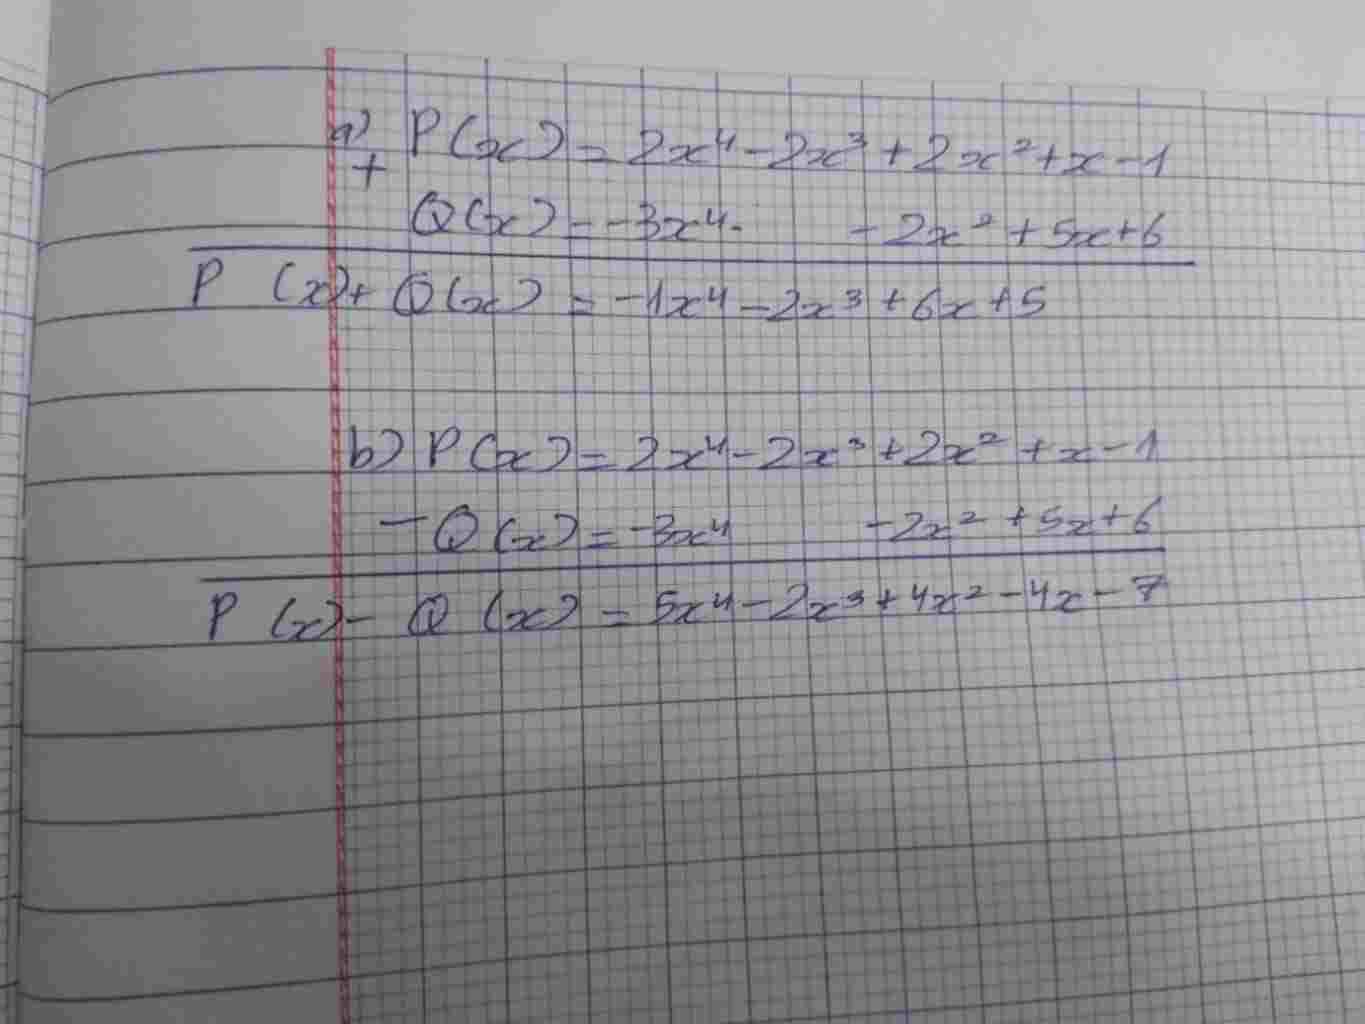 a) P(x) = 2x⁴ - 2x³ + 2x² + x - 1
+
Q(x) = -3x⁴. - 2x² + 5x + 6
P (x) + Q(x) = -1x⁴ - 2x³ + 6x + 5
b) P(x) = 2x⁴ - 2x³ + 2x² + x - 1
- Q(x) = -3x⁴ - 2x² + 5x + 6
P (x) - Q (x) = 5x⁴ - 2x³ + 4x² - 4x - 7